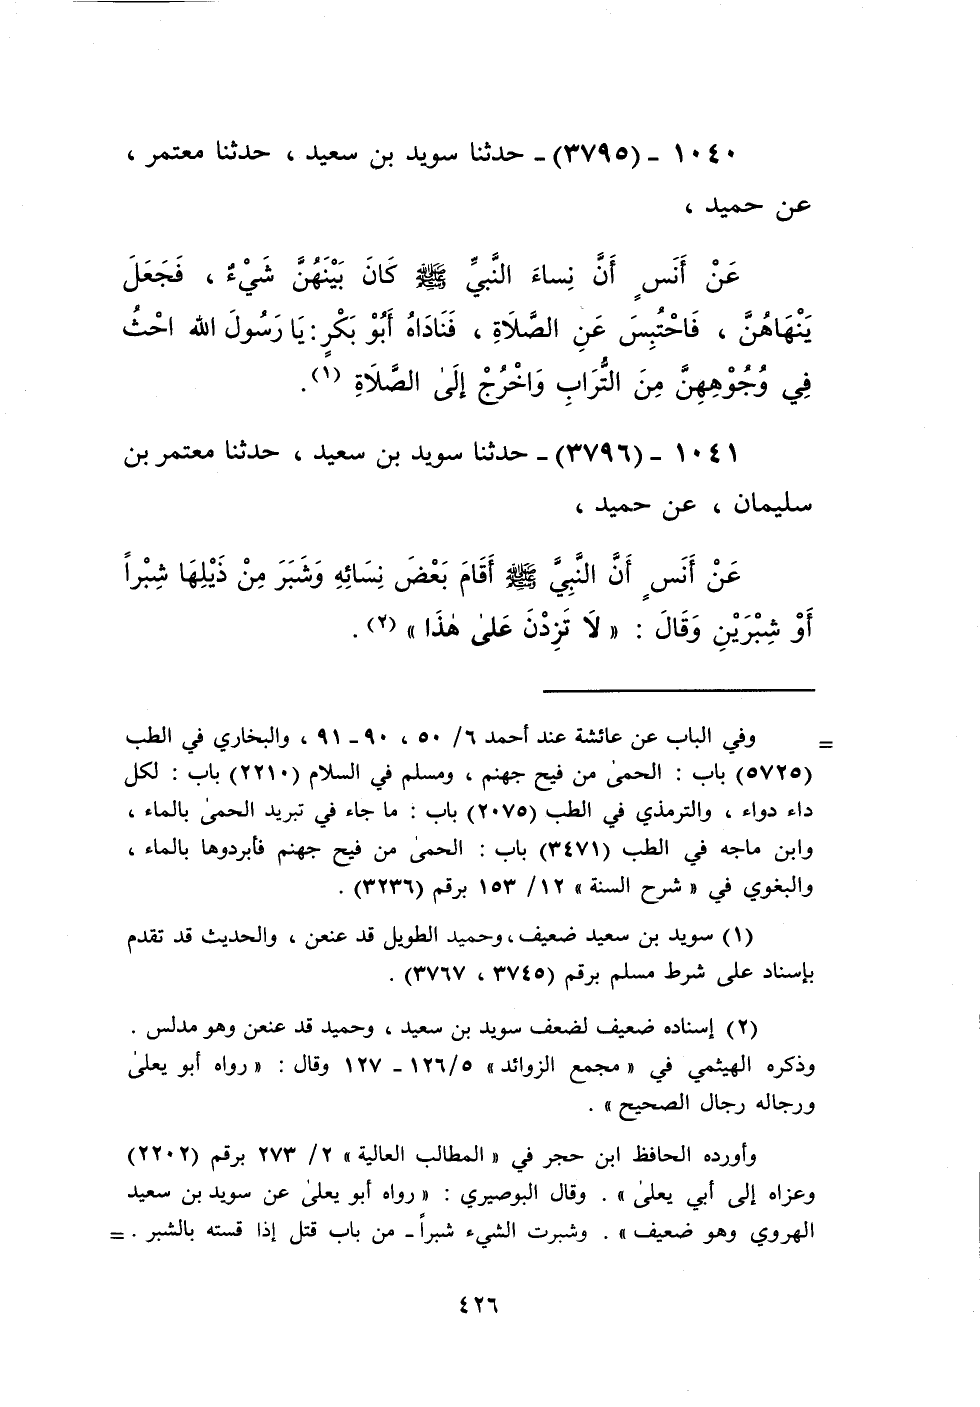 ١٠٤٠ ـ (٣٧٩٥) ـ حدثنا سويد بن سعيد ، حدثنا معتمر ،
عن حميد ،
عَنْ أَنَسٍ أَنَّ نِساءَ النَّبِيِّ ﷺ كَانَ بَيْنَهُنَّ شَيْءٌ ، فَجَعَلَ
يَنْهَاهُنَّ ، فَاحْتُبِسَ عَنِ الصَّلَاةِ ، فَنَادَاهُ أَبُوْ بَكْرٍ : يَا رَسُولَ الله احْثُ
فِي وُجُوْهِهِنَّ مِنَ التُّرَابِ وَاخْرُجْ إِلَىٰ الصَّلَاةِ (١) .
١٠٤١ ـ (٣٧٩٦) ـ حدثنا سويد بن سعيد ، حدثنا معتمر بن
سليمان ، عن حميد ،
عَنْ أَنَسٍ أَنَّ النَّبِيَّ ﷺ أَقَامَ بَعْضَ نِسَائِهِ وَشَبَرَ مِنْ ذَيْلِهَا شِبْراً
أَوْ شِبْرَيْنِ وَقَالَ : « لَا تَزِدْنَ عَلىٰ هٰذَا » (٢) .
= وفي الباب عن عائشة عند أحمد ٦/ ٥٠ ، ٩٠ ـ ٩١ ، والبخاري في الطب
(٥٧٢٥) باب : الحمىٰ من فيح جهنم ، ومسلم في السلام (٢٢١٠) باب : لكل
داء دواء ، والترمذي في الطب (٢٠٧٥) باب : ما جاء في تبريد الحمىٰ بالماء ،
وابن ماجه في الطب (٣٤٧١) باب : الحمىٰ من فيح جهنم فأبردوها بالماء ،
والبغوي في « شرح السنة » ١٢/ ١٥٣ برقم (٣٢٣٦) .
(١) سويد بن سعيد ضعيف ، وحميد الطويل قد عنعن ، والحديث قد تقدم
بإسناد على شرط مسلم برقم (٣٧٤٥ ، ٣٧٦٧) .
(٢) إسناده ضعيف لضعف سويد بن سعيد ، وحميد قد عنعن وهو مدلس .
وذكره الهيثمي في « مجمع الزوائد » ٥/١٢٦ ـ ١٢٧ وقال : « رواه أبو يعلىٰ
ورجاله رجال الصحيح » .
وأورده الحافظ ابن حجر في « المطالب العالية » ٢/ ٢٧٣ برقم (٢٢٠٢)
وعزاه إلى أبي يعلىٰ » . وقال البوصيري : « رواه أبو يعلىٰ عن سويد بن سعيد
الهروي وهو ضعيف » . وشبرت الشيء شبراً ـ من باب قتل إذا قسته بالشبر . =
٤٢٦